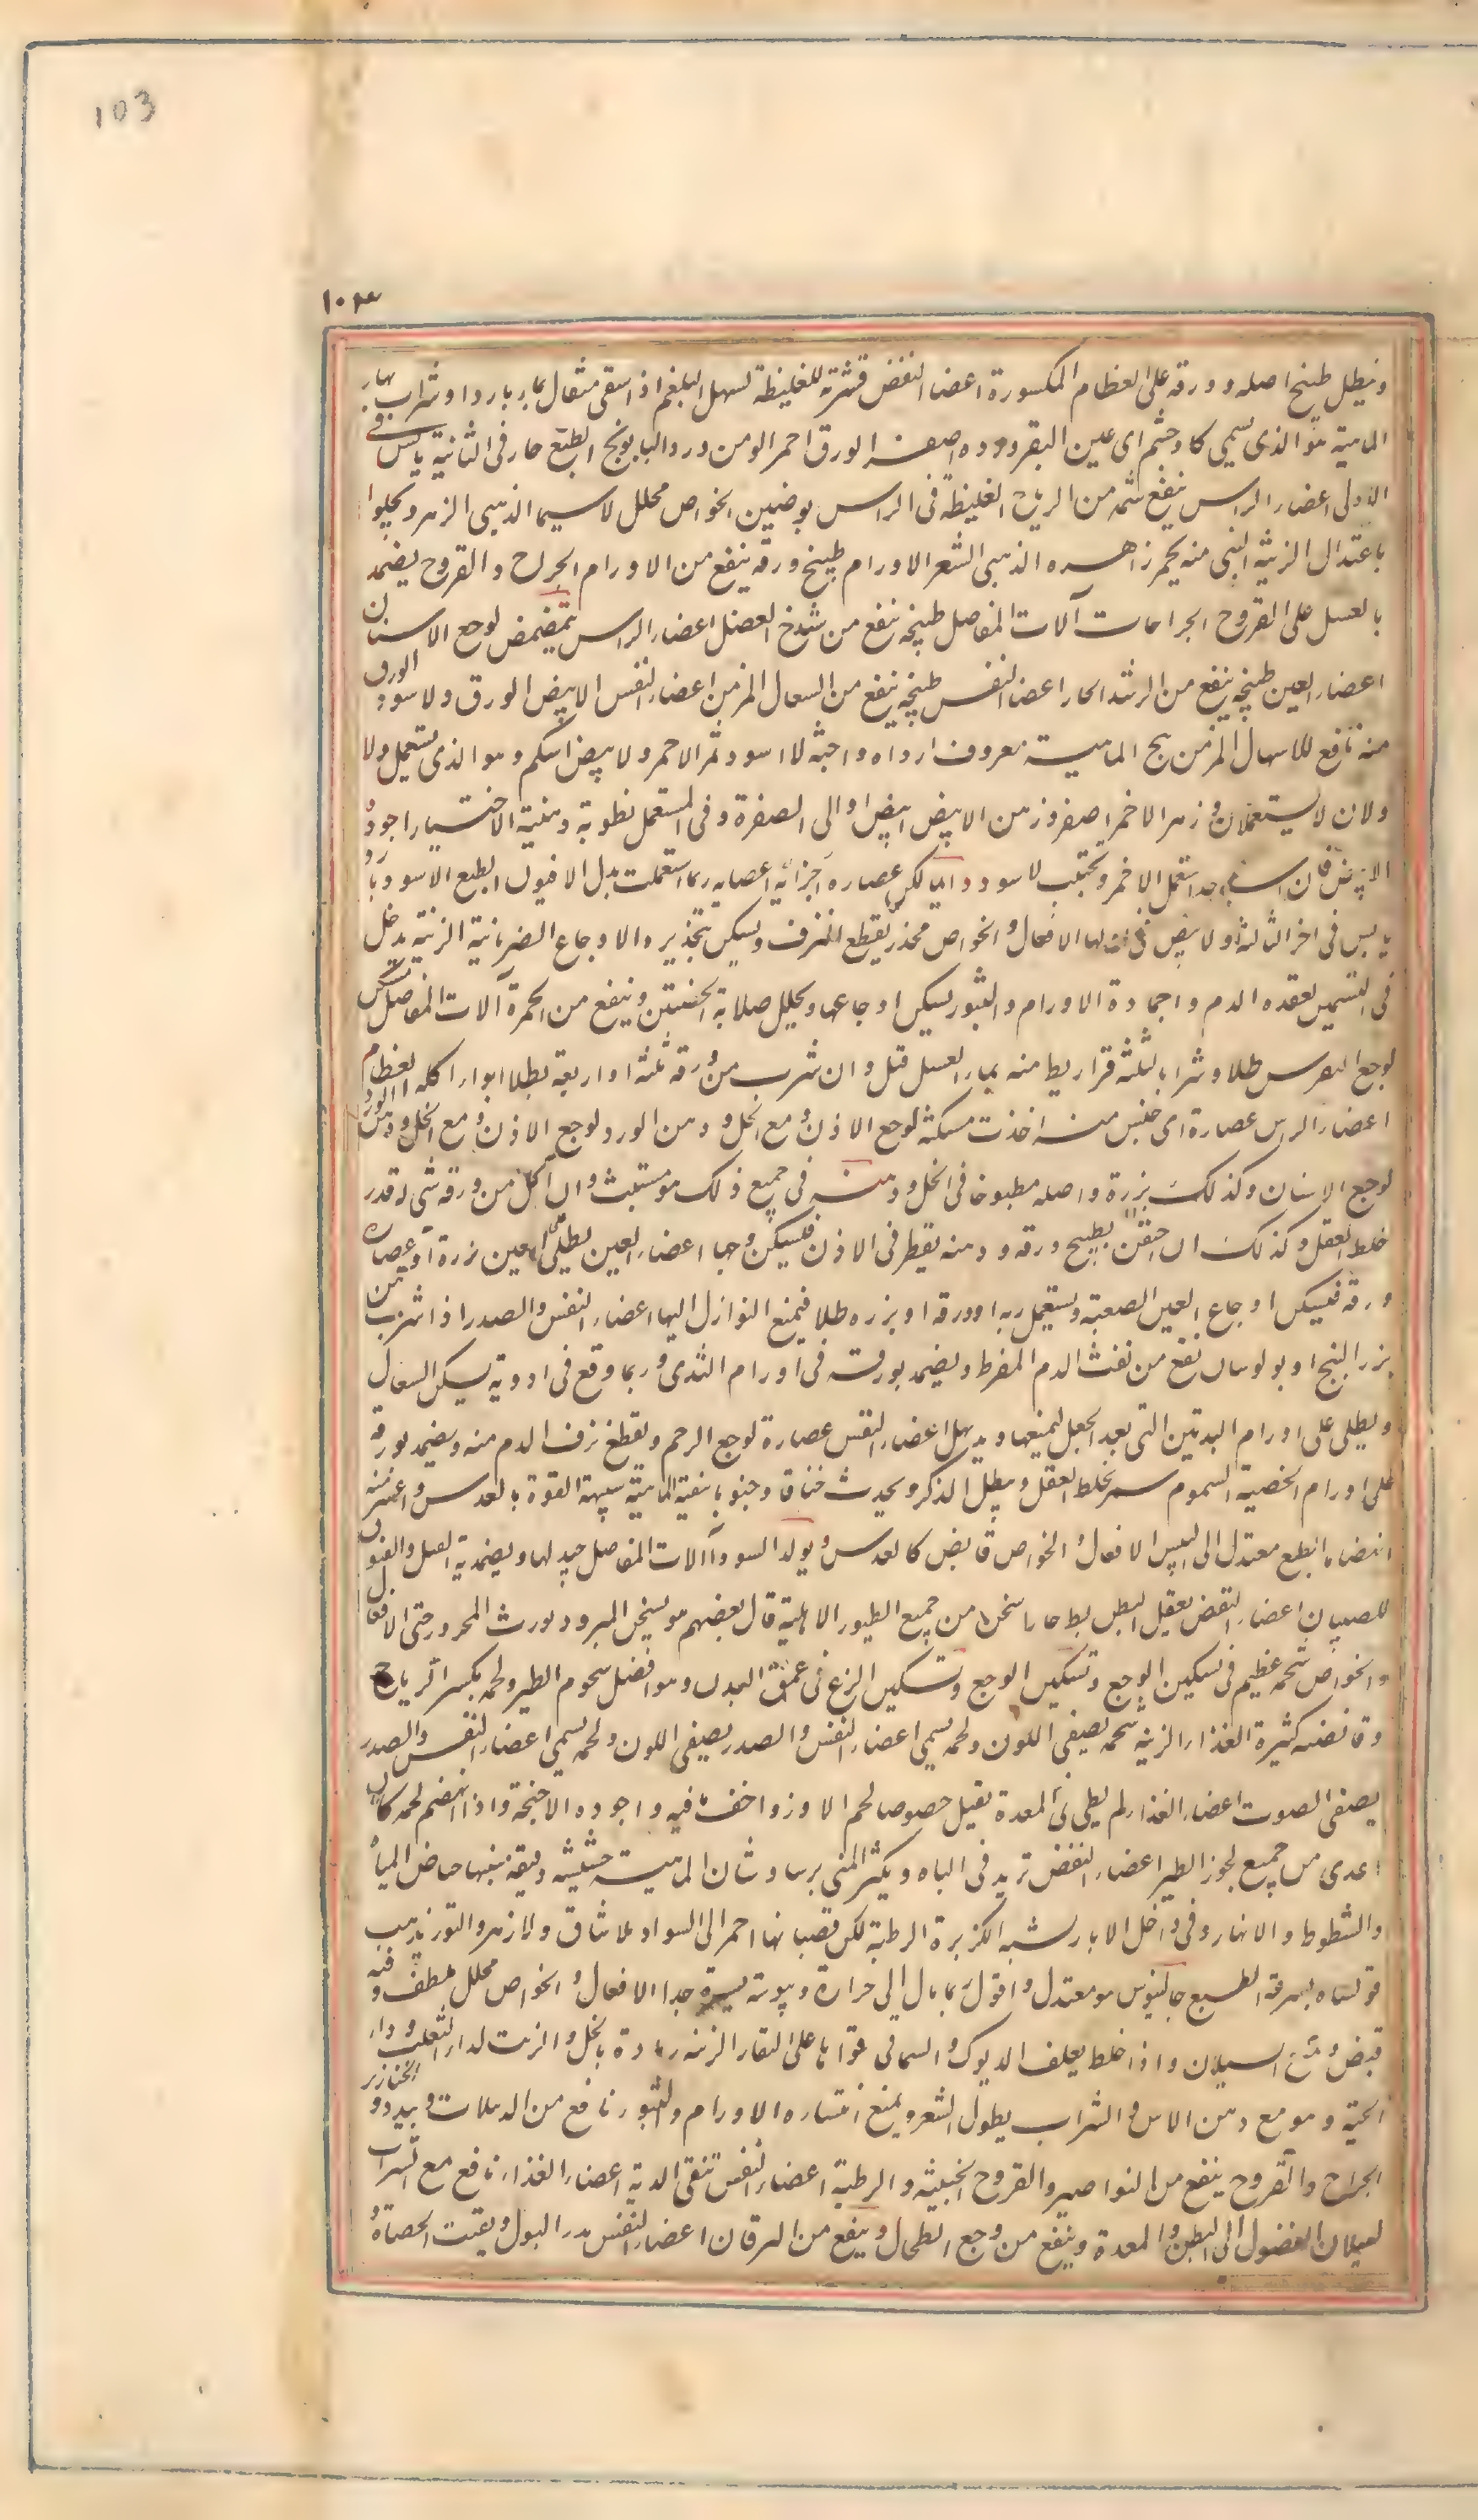 103
١٠٣
ونيطل طبيخ اصله وورقه على العظام المكسورة اعضاء النفض قشرته للغليظة تسهل البلغم اذا سقى مثقال بماء بارد او شراب بهار
الماهية هو الذى يسمى كاوچشم اى عين البقر وورده اصفر الورق احمر الوسط من ورد البابونج الطبع حار فى الثانية يابس فى
الاولى اعضاء الراس ينفع شمه من الرياح الغليظة فى الراس الخواص محلل لاسيما الذهبى الزهر ويجلوا
باعتدال الزينة منه زهره الذهبى الشعر الاورام طبيخ ورقه ينفع من الاورام الجراح والقروح يضمد
بالعسل على القروح الجراحات آلات المفاصل طبيخه ينفع من شدخ العضل اعضاء الراس يتمضمض لوجع الاسنان
اعضاء العين طبيخه ينفع من الرمد الحار اعضاء النفس طبيخه ينفع من السعال المزمن اعضاء النفس الابيض الورق ولاسود الورق
منه نافع للاسهال المزمن بنج الماهية معروف ارداه واخبثه لااسود ثم الاحمر ولابيض اسلم وهو الذى يستعمل ولا
ولان لا يستعملان وزهر الاحمر اصفر وزهر الابيض ابيض او الى الصفرة وفى المستعمل رطوبة دهنية الاختيار اجود
الابيض فان لم يوجد استعمل الاحمر ويجتنب لاسود دايما لكن عصاره اجزائه ربما استعملت بدل الافيون الطبع الاسود بارد
يابس فى اخر الثالثة ولابيض فى اولها الافعال والخواص مخدر يقطع النزف ويسكن بتخديره الاوجاع الضربانية الزينة يدخل
فى التسمين لعقده الدم واجماده الاورام والبثور يسكن اوجاعها ويحلل صلابة الخصيتين وينفع من الحمرة آلات المفاصل يسكن
لوجع النقرس طلا وشرابا بثلثة قراريط منه بماء العسل قبل وان شرب من ورقه ثلثة او اربعة بطلا ابرا اكله العظام
اعضاء الراس عصارة اى جنس منه اخذت مسكنة لوجع الاذن ومع الخل ودهن الورد لوجع الاذن ومع الخل ودهن الورد
لوجع الاسنان وكذلك بزره واصله مطبوخا فى الخل ودهنه فى جميع ذلك هو مسبت وان اكل من ورقه شى له قدر
خلط العقل وكذلك ان احتقن بطبيخ ورقه ودهنه يقطر فى الاذن فيسكن وجعها اعضاء العين يطلى العين بزره او عصاره
ورقه فيسكن اوجاع العين الصعبة ويستعمل ربه او ورقه او بزره طلا فيمنع النوازل اليها اعضاء النفس والصدر اذا شرب من
بزر البنج اوبولوسان نفع من نفث الدم المفرط ويضمد بورقه فى اورام الثدى وربما وقع فى ادوية يسكن السعال
ويطلى على اورام الثديين التى بعد الحبل ليمنعها اعضاء النفض عصارة لوجع الرحم ويقطع نزف الدم منه ويضمد بورقه
على اورام الخصية السموم سم يخلط العقل ويبطل الذكر ويحدث خناقا وجنونا الماهية شبيهة القوة بالعدس واعسر منه
انهضاما الطبع معتدل الى اليبس الافعال والخواص قابض كالعدس ويولد السودا آلات المفاصل جيد لها ويضمد به
للصبيان اعضاء النفض يعقل البطن بط حار اسخن من جميع الطيور الاهلية قال بعضهم هو يسخن المبرود ويورث المحرور حتى الافعال
والخواص شحمه عظيم فى تسكين الوجع وتسكين الوجع وتسكين اللذع فى عمق البدن وهو افضل شحوم الطير ولحمه يكسر الرياح
وقانصته كثيرة الغذاء الزينة شحمه يصفى اللون ولحمه يسمن اعضاء النفس والصدر يصفى اللون ولحمه يسمن اعضاء النفس والصدر
يصفى الصوت اعضاء الغذاء لحمه بطى فى المعدة ثقيل خصوصا لحم الاوز واخف ما فيه واجوده الاجنحة واذا انهضم لحمه كان
اغذى من جميع لحوم الطير اعضاء النفض يزيد فى الباه ويكثر المنى برساوشان الماهية حشيشة دقيقة منبتها حياض المياه
والشطوط والانهار وفى داخل الابار يشبه الكزبرة الرطبة لكن قضبانها احمر الى السواد بلا ساق ولا زهر ولا نور يذهب
قوتها بسرعة الطبع جالينوس هو معتدل واقول ربما مال الى حرارة ويبوسة يسيرة جدا الافعال والخواص محلل ملطف وفيه
قبض ومنع السيلان واذا خلط بعلف الديوك والسمانى قواها على النقار الزينة رماده بالخل والزيت لداء الثعلب وداء
الحية وهو مع دهن الاس والشراب يطول الشعر ويمنع انتثاره الاورام والبثور نافع من الدبيلات ويبدد الخنازير
الجراح والقروح ينفع من النواصير والقروح الخبيثة والرطبة اعضاء النفس تنقى الرية اعضاء الغذاء نافع مع الشراب
لسيلان الفضول الى البطن والمعدة وينفع من وجع الطحال وينفع من اليرقان اعضاء النفس يدر البول ويفتت الحصاة